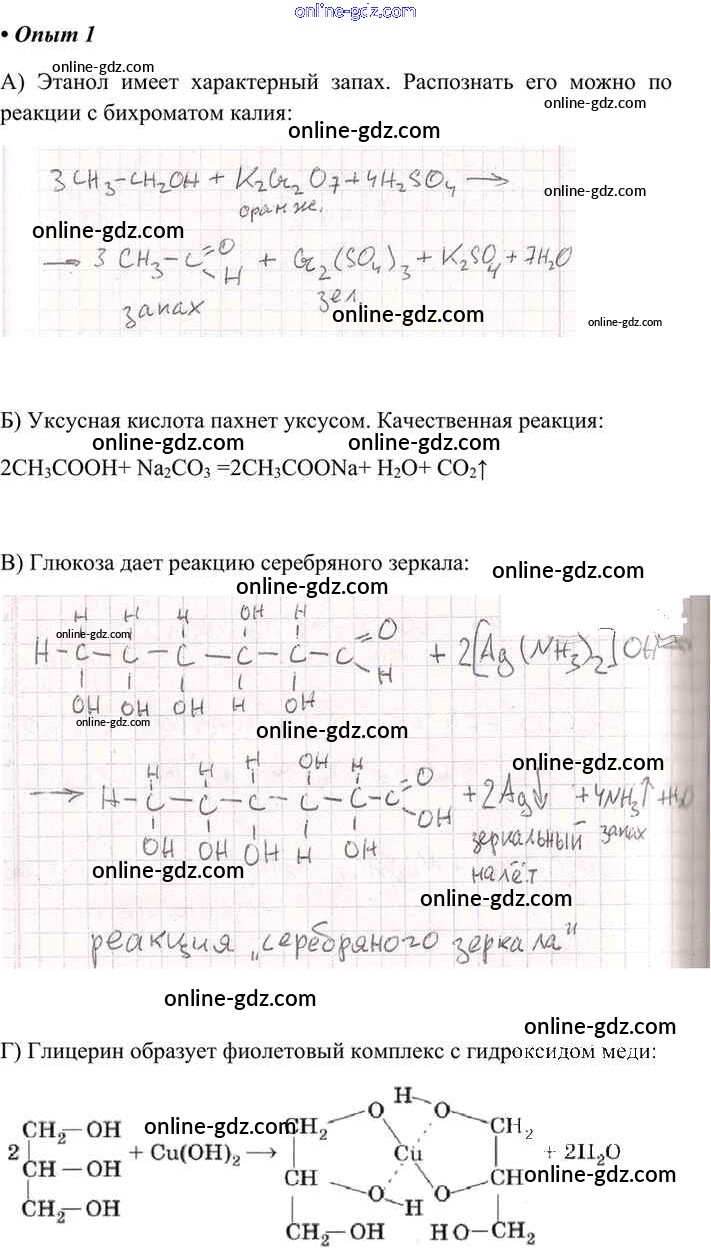 online-gdz.com
• Опыт 1
online-gdz.com
online-gdz.com
А) Этанол имеет характерный запах. Распознать его можно по
online-gdz.com
реакции с бихроматом калия:
online-gdz.com
3CH₃-CH₂OH + K₂Cr₂O₇ + 4H₂SO₄ →
оранж.
online-gdz.com
online-gdz.com
→ 3 CH₃-C=O + Cr₂(SO₄)₃ + K₂SO₄ + 7H₂O
H
запах зел.
online-gdz.com
online-gdz.com
Б) Уксусная кислота пахнет уксусом. Качественная реакция:
online-gdz.com online-gdz.com
2CH₃COOH+ Na₂CO₃ =2CH₃COONa+ H₂O+ CO₂↑
В) Глюкоза дает реакцию серебряного зеркала:
online-gdz.com
online-gdz.com
H H H OH H O
online-gdz.com
H-C-C-C-C-C-C + 2[Ag(NH₃)₂]OH
H
OH OH OH H OH
online-gdz.com
online-gdz.com
H H H OH H O
online-gdz.com
→ H-C-C-C-C-C-C + 2Ag↓ + 4NH₃↑ + H₂O
OH
OH OH OH H OH зеркальный запах
online-gdz.com налёт
online-gdz.com
реакция „серебряного зеркала"
online-gdz.com
online-gdz.com
Г) Глицерин образует фиолетовый комплекс с гидроксидом меди:
online-gdz.com
H
O O
CH₂-OH CH₂ CH₂
2 CH-OH + Cu(OH)₂ → Cu + 2H₂O
CH CH
online-gdz.com
O O
H
CH₂-OH CH₂-OH HO-CH₂